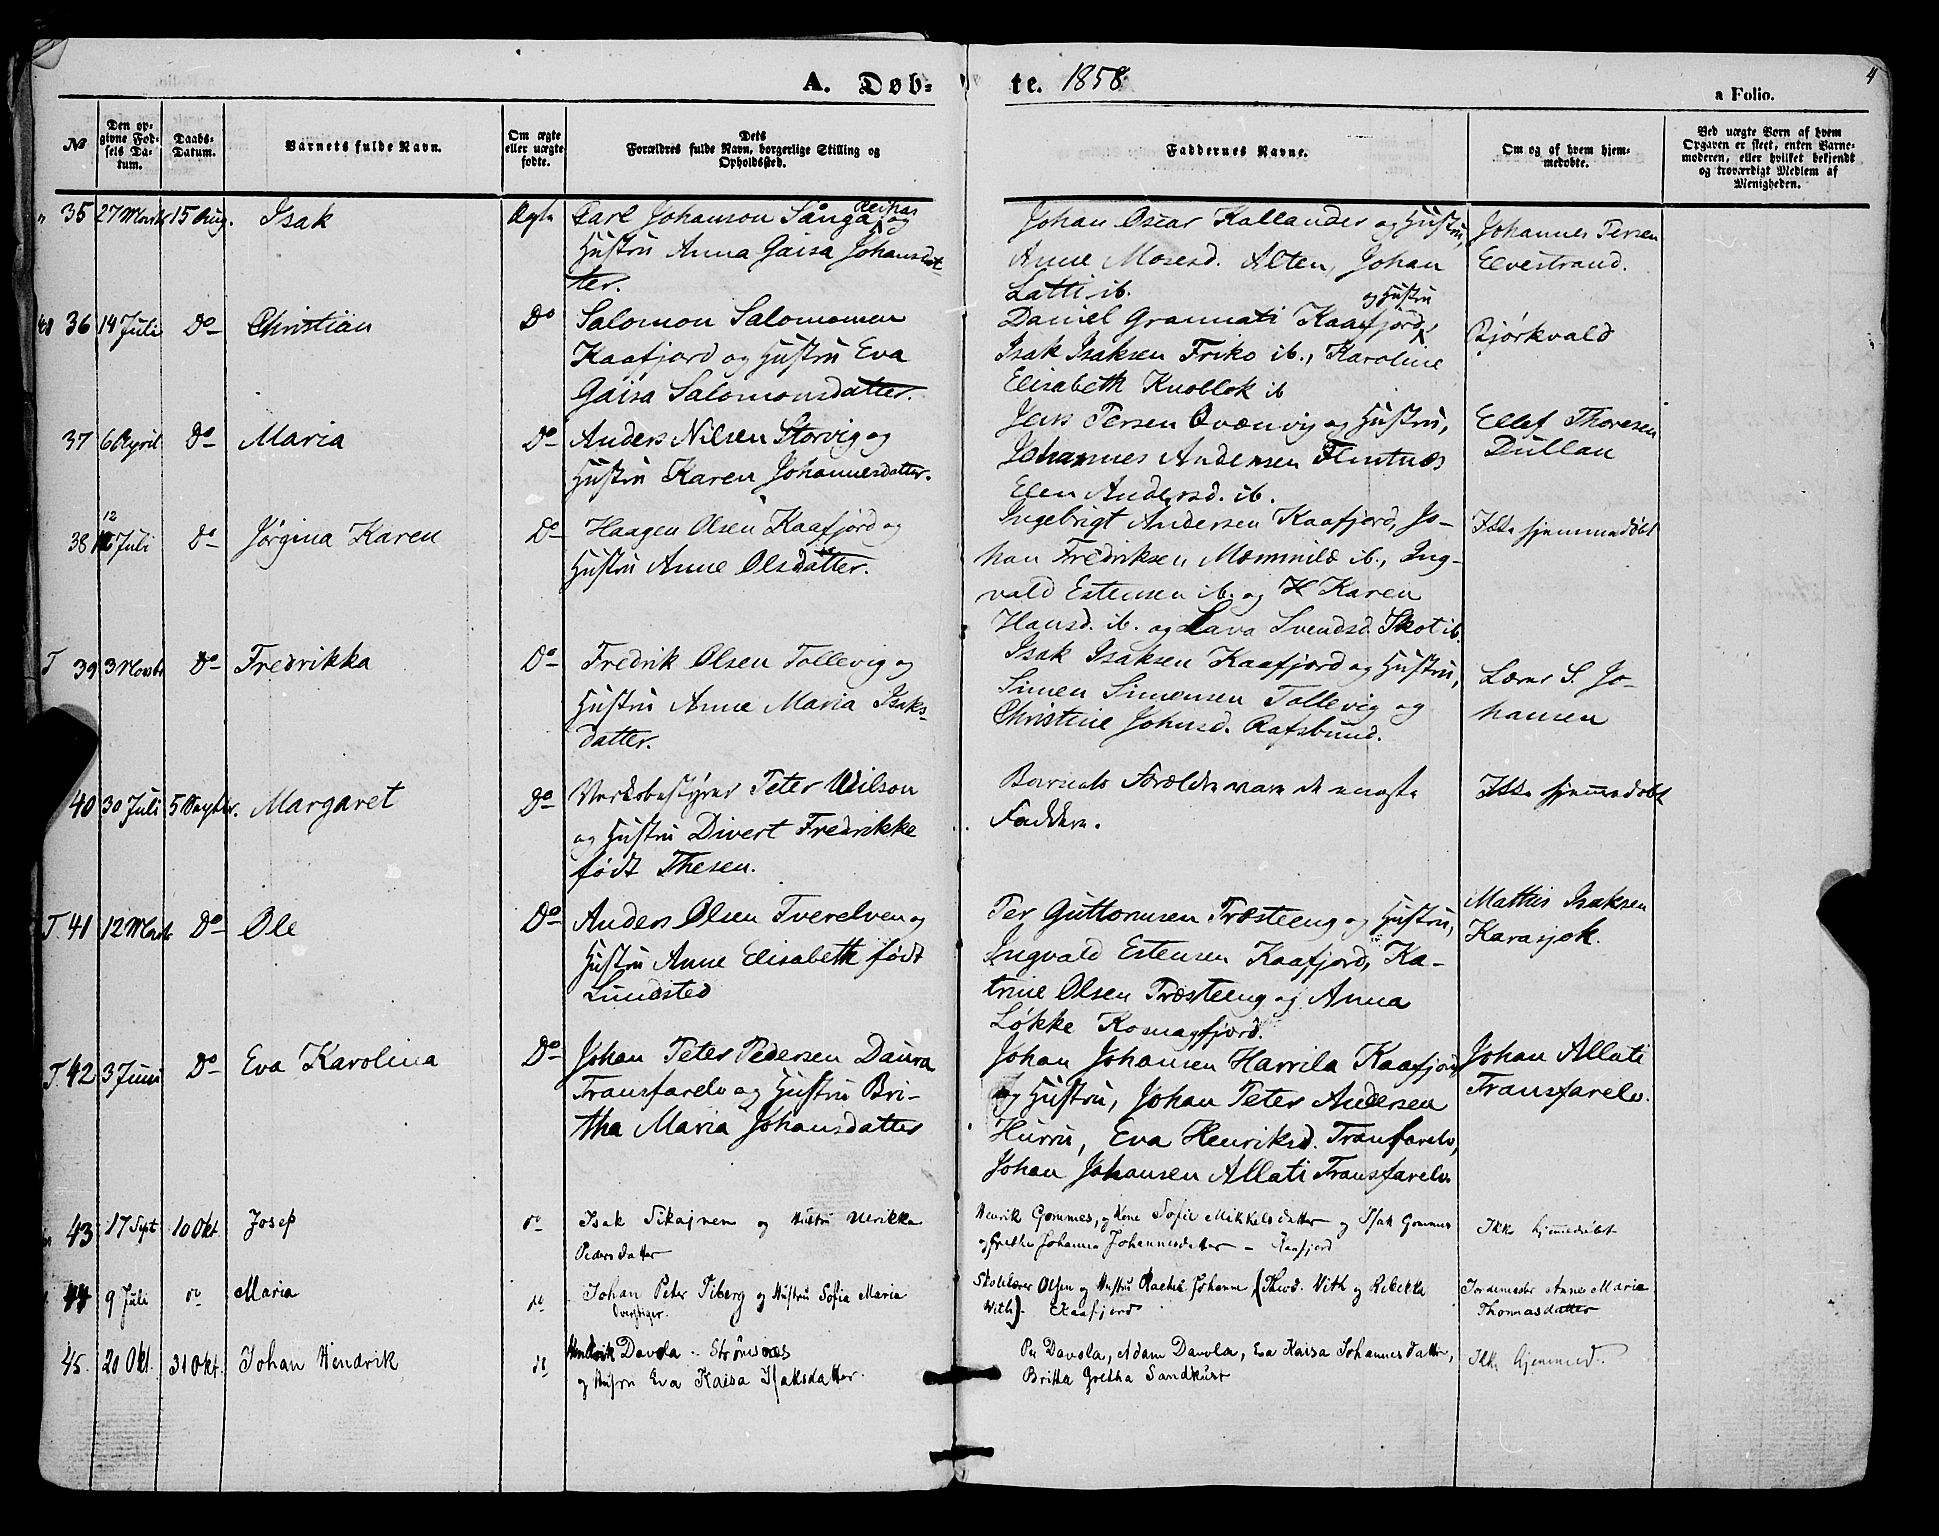 A. Døb- te. 1858
4
a Folio.
№
Den opgivne Fødsels Datum.
Daabs-Datum.
Barnets fulde Navn.
Om ægte eller uægte fødte.
Dets Forældres fulde Navn, borgerlige Stilling og Opholdssted.
Faddernes Navne.
Om og af hvem hjemmedøbte.
Ved uægte Børn af hvem Opgaven er skeet, enten Barnemoderen, eller hvilket bekjendt og troværdigt Medlem af Menigheden.
35 27 Marts 15 Aug. Isak Ægte
Carl Johanson Sånga og
Hustru Anna Gaisa Johansdat
ter.
Johan Oscar Kallander og Hustru,
Anne Mosesd. Alten, Johan
Latti ib.
Johannes Persen
Elvestrand.
36 14 Juli Do Christian Do
Salomon Salomonsen
Kaafjord og Hustru Eva
Gaisa Salomonsdatter.
og Hustru
Daniel Grannati Kaafjord,
Isak Isaksen Friko ib., Karoline
Elisabeth Knoblok ib
Bjørkvald
37 6 April Do Maria Do
Anders Nilsen Storvig og
Hustru Karen Johannesdatter.
Jens Persen Qvænvig og Hustru,
Johannes Andersen Flintnæs
Elen Andersd. ib.
Ellef Thoresen
Dullan
38 12 Juli Do Jørgina Karen Do
Haagen Olsen Kaafjord og
Hustru Anne Olsdatter.
Ingebrigt Andersen Kaafjord, Jo-
han Fredriksen Mommila ib., Ing-
vald Estensen ib. og Karen
Hansd. ib. og Lava Svendsd. Skot ib.
Ikke hjemmedøbt
T 39 3 Marts Do Fredrikka Do
Fredrik Olsen Tollevig og
Hustru Anne Maria Isaks-
datter.
Isak Isaksen Kaafjord og Hustru,
Simen Simensen Tollevig og
Christine Johnsd. Rafsbund.
Lærer S. Jo-
hansen
40 30 Juli 5 Septbr. Margaret Do
Verksbestyrer Peter Wilson
og Hustru Divert Fredrikke
født Thesen.
Barnets Forældre vare de eneste
Faddere.
Ikke hjemmedøbt
T. 41 12 Marts Do Ole Do
Anders Olsen Tverelven og
Hustru Anne Elisabeth født
Lundsted
Per Guttormsen Træsteeng og Hustru,
Ingvald Estensen Kaafjord, Ka-
trine Olsen Træsteeng og Anna
Løkke Komagfjord.
Mathis Isaksen
Karasjok.
T. 42 3 Juni Do Eva Karolina Do
Johan Peter Pedersen Daura
Transfarelv og Hustru Bri-
tha Maria Johansdatter
Johan Johansen Harrila Kaafjord
og Hustru, Johan Peter Andersen
Hurru, Eva Henriksd. Tranfarelv,
Johan Johansen Allati Transfarelv
Johan Allati
Transfarelv.
43 17 Sept 10 Okt Josep do
Isak Pikajnen og Hustru Ulrikka
Pedersdatter
Henrik Gommes, og Kone Sofie Mikkelsdatter og Isak Gommes
og Grethe Johanna Johannesdatter – Kaafjord
Ikke hjemmedøbt
44 9 Juli do Maria do
Johan Peter Piberg og Hustru Sofia Maria
Skolelærer Olsen og Hustru Rachel Johanne (Theod. With og Rebekka
With) – Kaafjord
Jordemoder Anne Maria
Thomasdatter
45. 20 Okt. 31 Okt. Johan Hendrik do
Hendrik Davola – Strømsnæs
og Hustru Eva Kaisa Isaksdatter.
Per Davola, Adam Davola, Eva Kaisa Johannesdatter,
Britta Gretha Sandkurt
Ikke hjemmed.